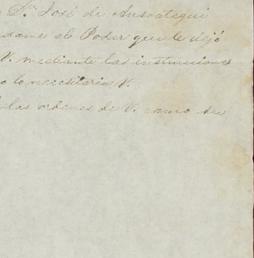 Sr. José de Ansoategui
el Poder que le dejó
V. mediante las instrucciones
lo necesitaria V.
las ordenes de V. como su